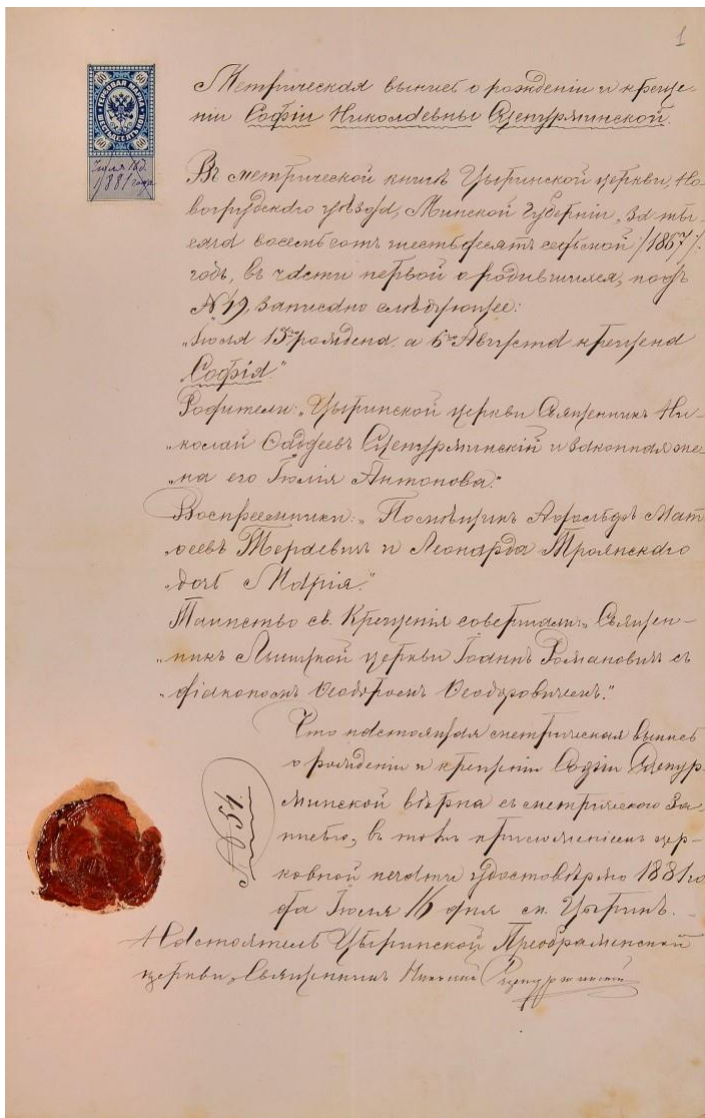 1
60 60
ГЕРБОВАЯ МАРКА
ШЕСТЬДЕСЯТЪ КОП.
60 60
Іюля 16 д.
1881 года
Метрическая выпись о рожденіи и креще-
ніи Софіи Николаевны Сцепуржинской.
Въ метрической книгѣ Цыринской церкви, Но-
вогрудскаго уѣзда, Минской Губерніи, за ты-
сяча восемьсотъ шестьдесятъ седьмой /1867/
годъ, въ части первой о родившихся, подъ
№ 19, записано слѣдующее:
„Іюля 13го рождена а 6го Августа крещена
Софія."
Родители: „Цыринской церкви Священникъ Ни-
„колай Фаддеевъ Сцепуржинскій и законная же-
„на его Іюлія Антонова."
Воспреемники: „Помѣщикъ Адольфъ Мат
веевъ Тераевичъ и Леонарда Троянскаго
„дочь Марія."
Таинство св. Крещенія совершали: „Священ-
„никъ Лышкой церкви Іоаннъ Романовичъ съ
„діакономъ Ѳеодоромъ Ѳеодоровичемъ."
Что настоящая метрическая выпись
о рожденіи и крещеніи Софіи Сцепур-
жинской вѣрна съ метрическою за-
писью, въ томъ приложеніемъ цер-
ковной печати удостовѣряю 1881 го
да Іюля 16 дня см. Цыринъ.
№ 51.
Настоятель Цыринской Преображенской
церкви, Священникъ Николай Сцепуржинскій